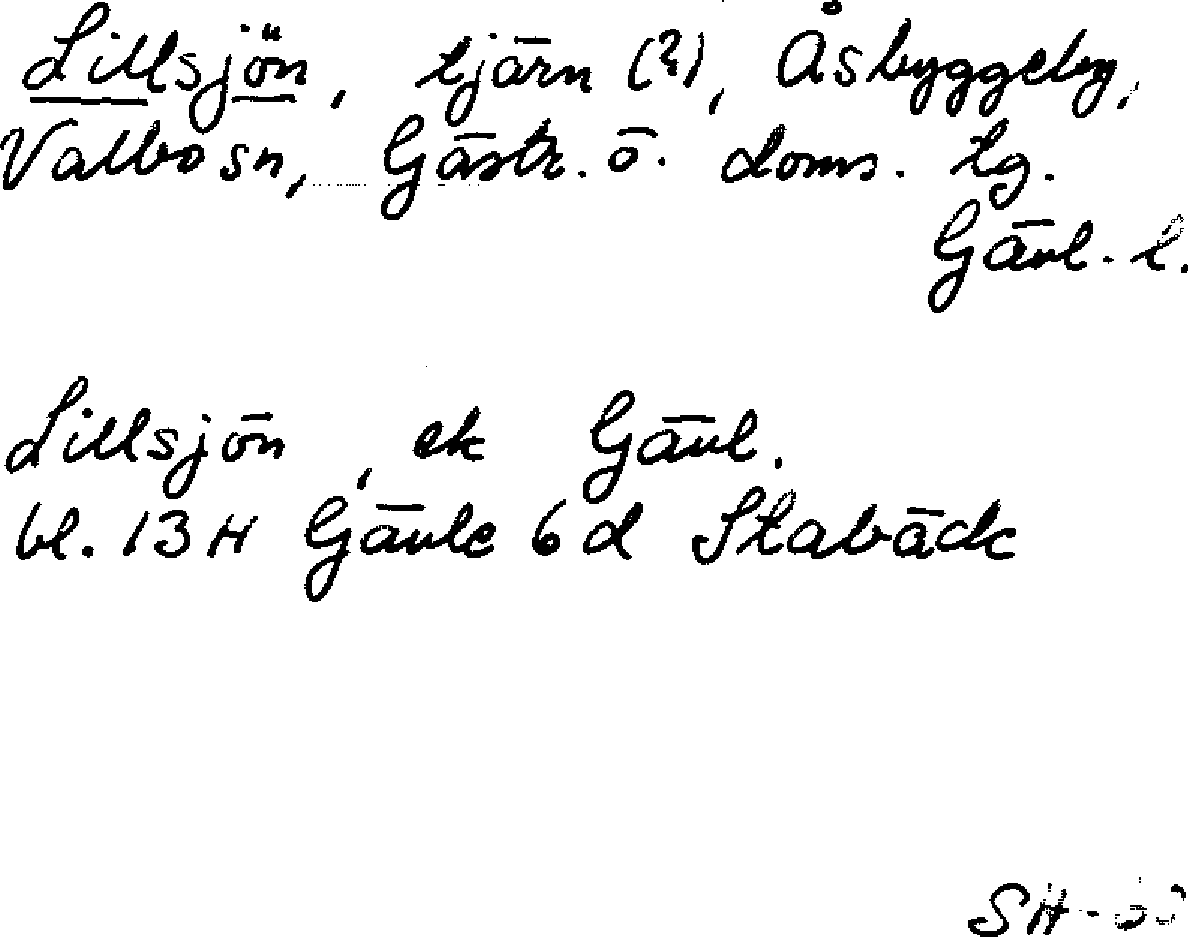 Lillsjön, tjärn (?), Åsbyggeby,
Valbo sn, Gästr. ö. doms. tg.
Gävl. l.
Lillsjön, ek Gävl.
bl. 13H Gävle 6d Stabäck
SH-